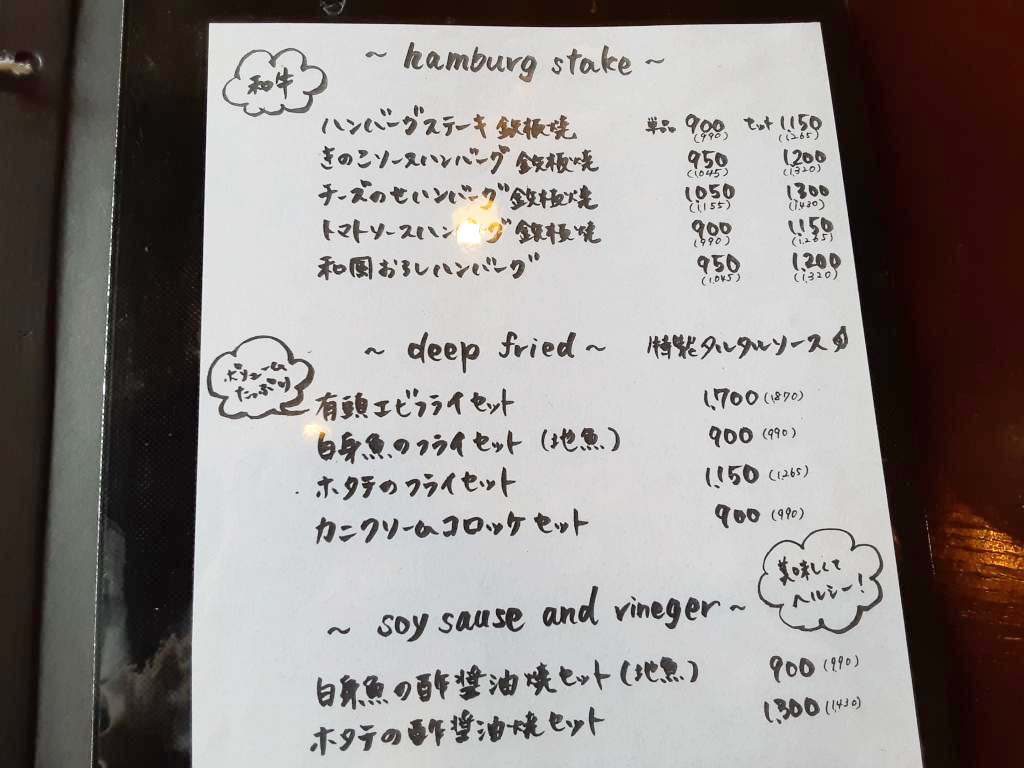 和牛
~ hamburg stake ~
ハンバーグステーキ 鉄板焼 単品 900 (990) セット 1,150 (1,265)
きのこソースハンバーグ 鉄板焼 950 (1,045) 1,200 (1,320)
チーズのせハンバーグ 鉄板焼 1,050 (1,155) 1,300 (1,430)
トマトソースハンバーグ 鉄板焼 900 (990) 1,150 (1,265)
和風おろしハンバーグ 950 (1,045) 1,200 (1,320)
~ deep fried ~ 特製タルタルソース
ボリューム
たっぷり
有頭エビフライセット 1,700 (1,870)
白身魚のフライセット (地魚) 900 (990)
ホタテのフライセット 1,150 (1,265)
カニクリームコロッケセット 900 (990)
美味しくて
ヘルシー!
~ soy sause and vineger ~
白身魚の酢醤油焼セット (地魚) 900 (990)
ホタテの酢醤油焼セット 1,300 (1,430)